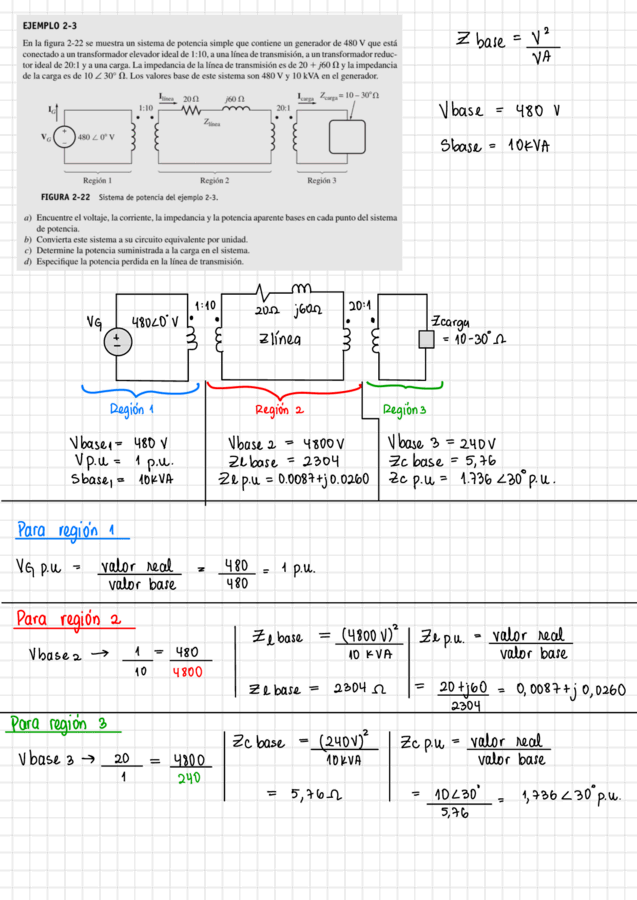 EJEMPLO 2-3
En la figura 2-22 se muestra un sistema de potencia simple que contiene un generador de 480 V que está
conectado a un transformador elevador ideal de 1:10, a una línea de transmisión, a un transformador reduc-
tor ideal de 20:1 y a una carga. La impedancia de la línea de transmisión es de 20 + j60 Ω y la impedancia
de la carga es de 10 ∠ 30° Ω. Los valores base de este sistema son 480 V y 10 kVA en el generador.
Z base = V² / VA
Vbase = 480 V
Sbase = 10KVA
I_G
1:10
I_línea
20 Ω
j60 Ω
Z_línea
20:1
I_carga
Z_carga = 10 – 30°Ω
V_G
480 ∠ 0° V
Región 1
Región 2
Región 3
FIGURA 2-22 Sistema de potencia del ejemplo 2-3.
a) Encuentre el voltaje, la corriente, la impedancia y la potencia aparente bases en cada punto del sistema
de potencia.
b) Convierta este sistema a su circuito equivalente por unidad.
c) Determine la potencia suministrada a la carga en el sistema.
d) Especifique la potencia perdida en la línea de transmisión.
VG
480∠0° V
1:10
20Ω j60Ω
Z línea
20:1
Zcarga
= 10-30° Ω
Región 1
Región 2
Región 3
Vbase1 = 480 V
Vp.u = 1 p.u.
Sbase1 = 10KVA
Vbase 2 = 4800V
Zℓ base = 2304
Zℓ p.u = 0.0087+j0.0260
Vbase 3 = 240V
Zc base = 5,76
Zc p.u = 1.736 ∠30° p.u.
Para región 1
VG p.u = valor real / valor base = 480 / 480 = 1 p.u.
Para región 2
Vbase 2 → 1 / 10 = 480 / 4800
Zℓ base = (4800 V)² / 10 KVA
Zℓ base = 2304 Ω
Zℓ p.u. = valor real / valor base
= 20+j60 / 2304 = 0,0087+j 0,0260
Para región 3
Vbase 3 → 20 / 1 = 4800 / 240
Zc base = (240V)² / 10KVA
= 5,76Ω
Zc p.u = valor real / valor base
= 10∠30° / 5,76 = 1,736 ∠30° p.u.